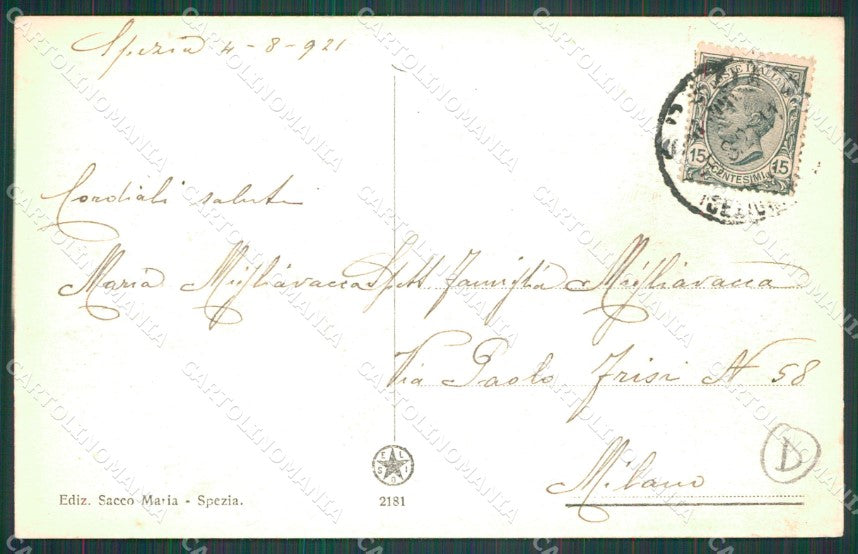 Spezia 4-8-921
Cordiali saluti
Maria Migliavacca
Spett Famiglia Migliavacca
Via Paolo Frisi N 58
Milano
D
POSTE ITALIANE
15 CENTESIMI 15
ELIOS
Ediz. Sacco Maria - Spezia.
2181
CARTOLINOMANIA